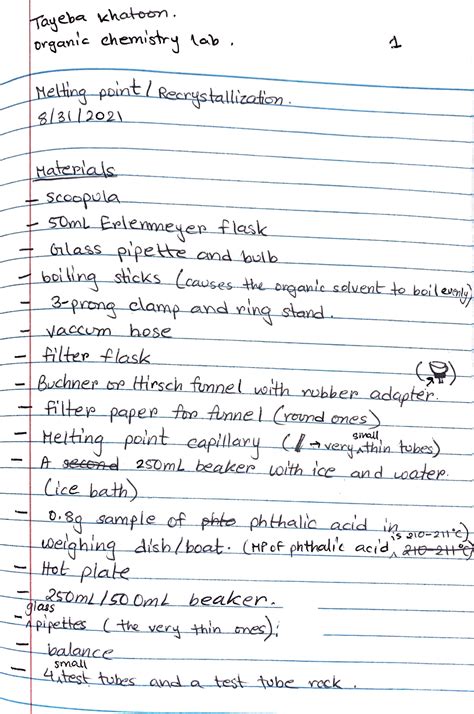 Tayeba Khatoon.
organic chemistry lab. 1
Melting point / Recrystallization.
8/31/2021
Materials
- scoopula
- 50mL Erlenmeyer flask
- Glass pipette and bulb
- boiling sticks (causes the organic solvent to boil evenly)
- 3-prong clamp and ring stand.
- vaccum hose
- filter flask
- Buchner or Hirsch funnel with rubber adapter.
- filter paper for funnel (round ones)
- Melting point capillary (→ very small thin tubes)
- A second 250mL beaker with ice and water
(ice bath)
- 0.8g sample of phto phthalic acid in
weighing dish/boat. (MP of phthalic acid is 210-211°C, 210-211°C)
- Hot plate
- 250mL/500mL beaker.
- glass pipettes (the very thin ones);
- balance
- 4 small test tubes and a test tube rack.